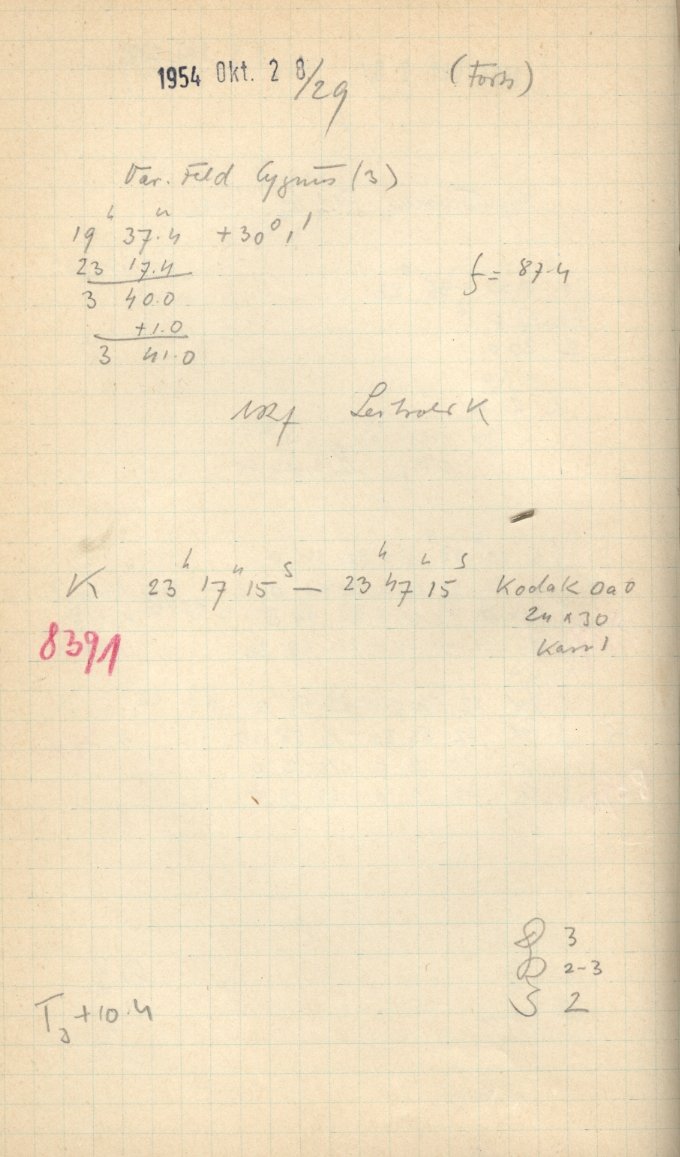 1954 Okt. 28/29 (Forts)
Var. Feld Cygnus (3)
19ʰ 37.4ᵐ +30° 1'
23 17.4
3 40.0
+1.0
3 41.0
f = 87.4
K
K 23ʰ 17ᵐ 15ˢ — 23ʰ 47ᵐ 15ˢ Kodak 0a0
24 x 30
Kass 1
8391
3
2-3
S 2
T +10.4